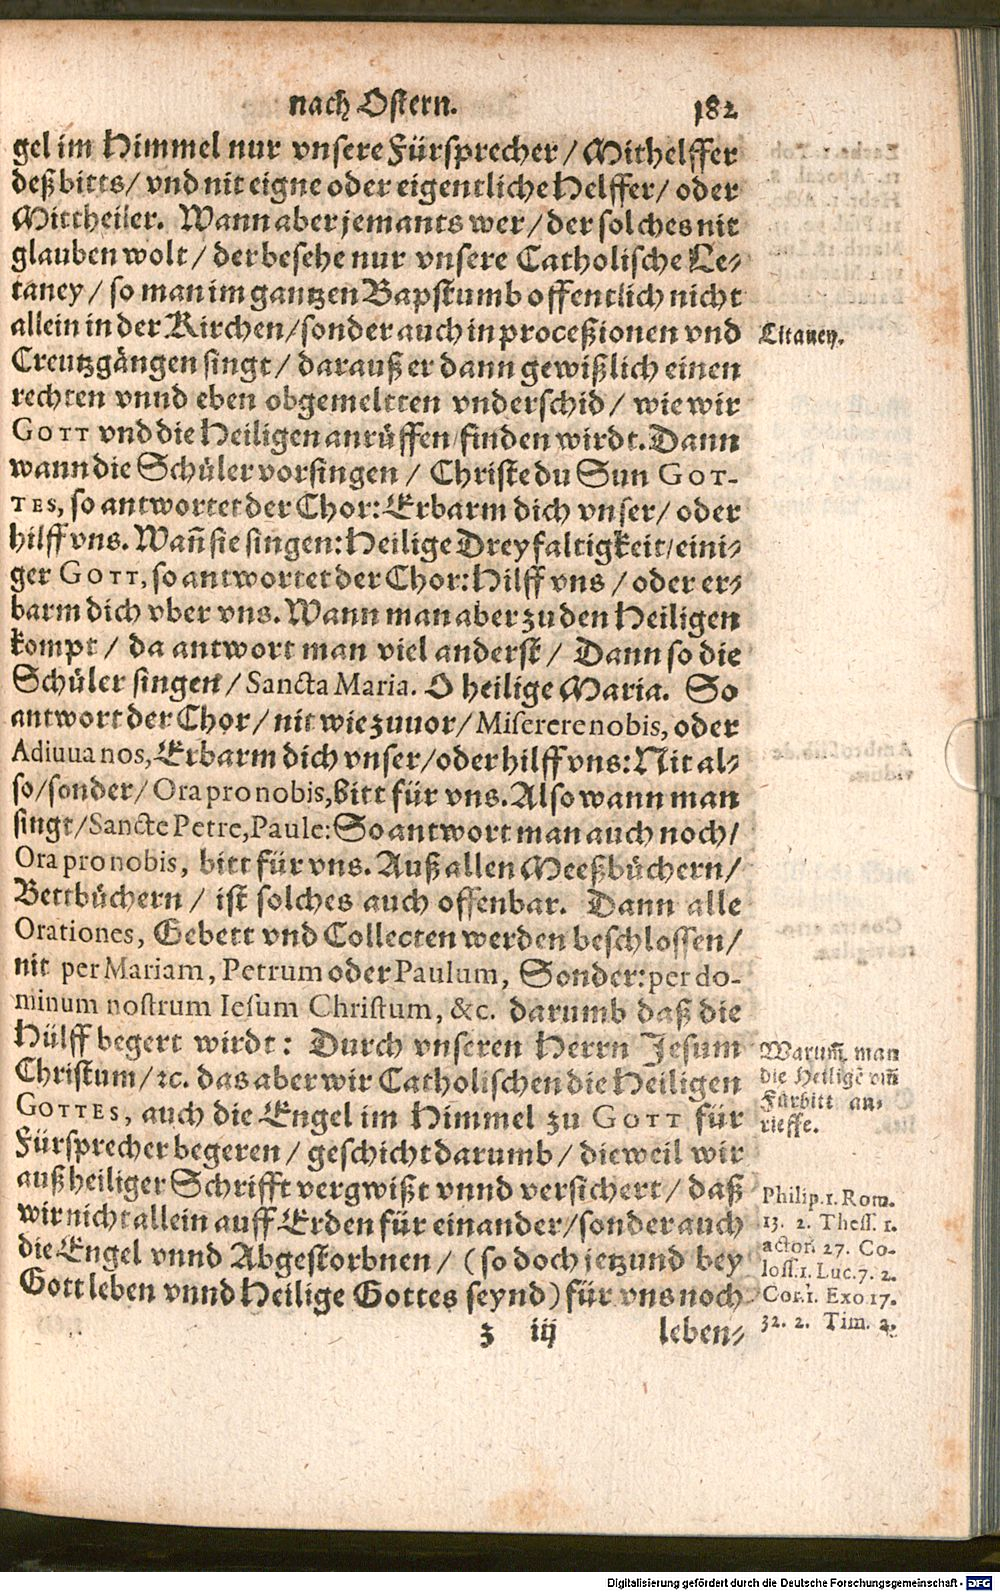 nach Ostern. 182
gel im Himmel nur vnsere Fürsprecher / Mithelffer
deß bitts / vnd nit eigne oder eigentliche Helffer / oder
Mittheiler. Wann aber jemants wer / der solches nit
glauben wolt / der besehe nur vnsere Catholische Le-
taney / so man im gantzen Bapstumb offentlich nicht
allein in der Kirchen / sonder auch in proceßionen vnd
Creutzgängen singt / darauß er dann gewißlich einen
rechten vnnd eben obgemeltten vnderschid / wie wir
GOTT vnd die Heiligen anrüffen / finden wirdt. Dann
wann die Schüler vorsingen / Christe du Sun GOT-
TES, so antwortet der Chor: Erbarm dich vnser / oder
hilff vns. Wañ sie singen: Heilige Dreyfaltigkeit / eini-
ger GOTT, so antwortet der Chor: Hilff vns / oder er-
barm dich vber vns. Wann man aber zu den Heiligen
kompt / da antwort man viel anderst / Dann so die
Schüler singen / Sancta Maria. O heilige Maria. So
antwort der Chor / nit wie zuuor / Miserere nobis, oder
Adiuua nos, Erbarm dich vnser / oder hilff vns: Nit al-
so / sonder / Ora pro nobis, bitt für vns. Also wann man
singt / Sancte Petre, Paule: So antwort man auch noch /
Ora pro nobis, bitt für vns. Auß allen Meeßbüchern /
Bettbüchern / ist solches auch offenbar. Dann alle
Orationes, Gebett vnd Collecten werden beschlossen /
nit per Mariam, Petrum oder Paulum, Sonder: per do-
minum nostrum Iesum Christum, &c. darumb daß die
Hülff begert wirdt: Durch vnseren Herrn Jesum
Christum / ꝛc. das aber wir Catholischen die Heiligen
GOTTES, auch die Engel im Himmel zu GOTT für
Fürsprecher begeren / geschicht darumb / dieweil wir
auß heiliger Schrifft vergwißt vnnd versichert / daß
wir nicht allein auff Erden für einander / sonder auch
die Engel vnnd Abgestorbnen / (so doch jetzund bey
Gott leben vnnd Heilige Gottes seynd) für vns noch
z iij leben-
Litaney.
Warum̃ man
die Heiligẽ vm̃
Fürbitt an-
rieffe.
Philip. 1. Rom.
13. 2. Thess. 1.
actor. 27. Co-
loss. 1. Luc. 7. 2.
Cor. 1. Exo 17.
32. 2. Tim. 2.
Digitalisierung gefördert durch die Deutsche Forschungsgemeinschaft - DFG